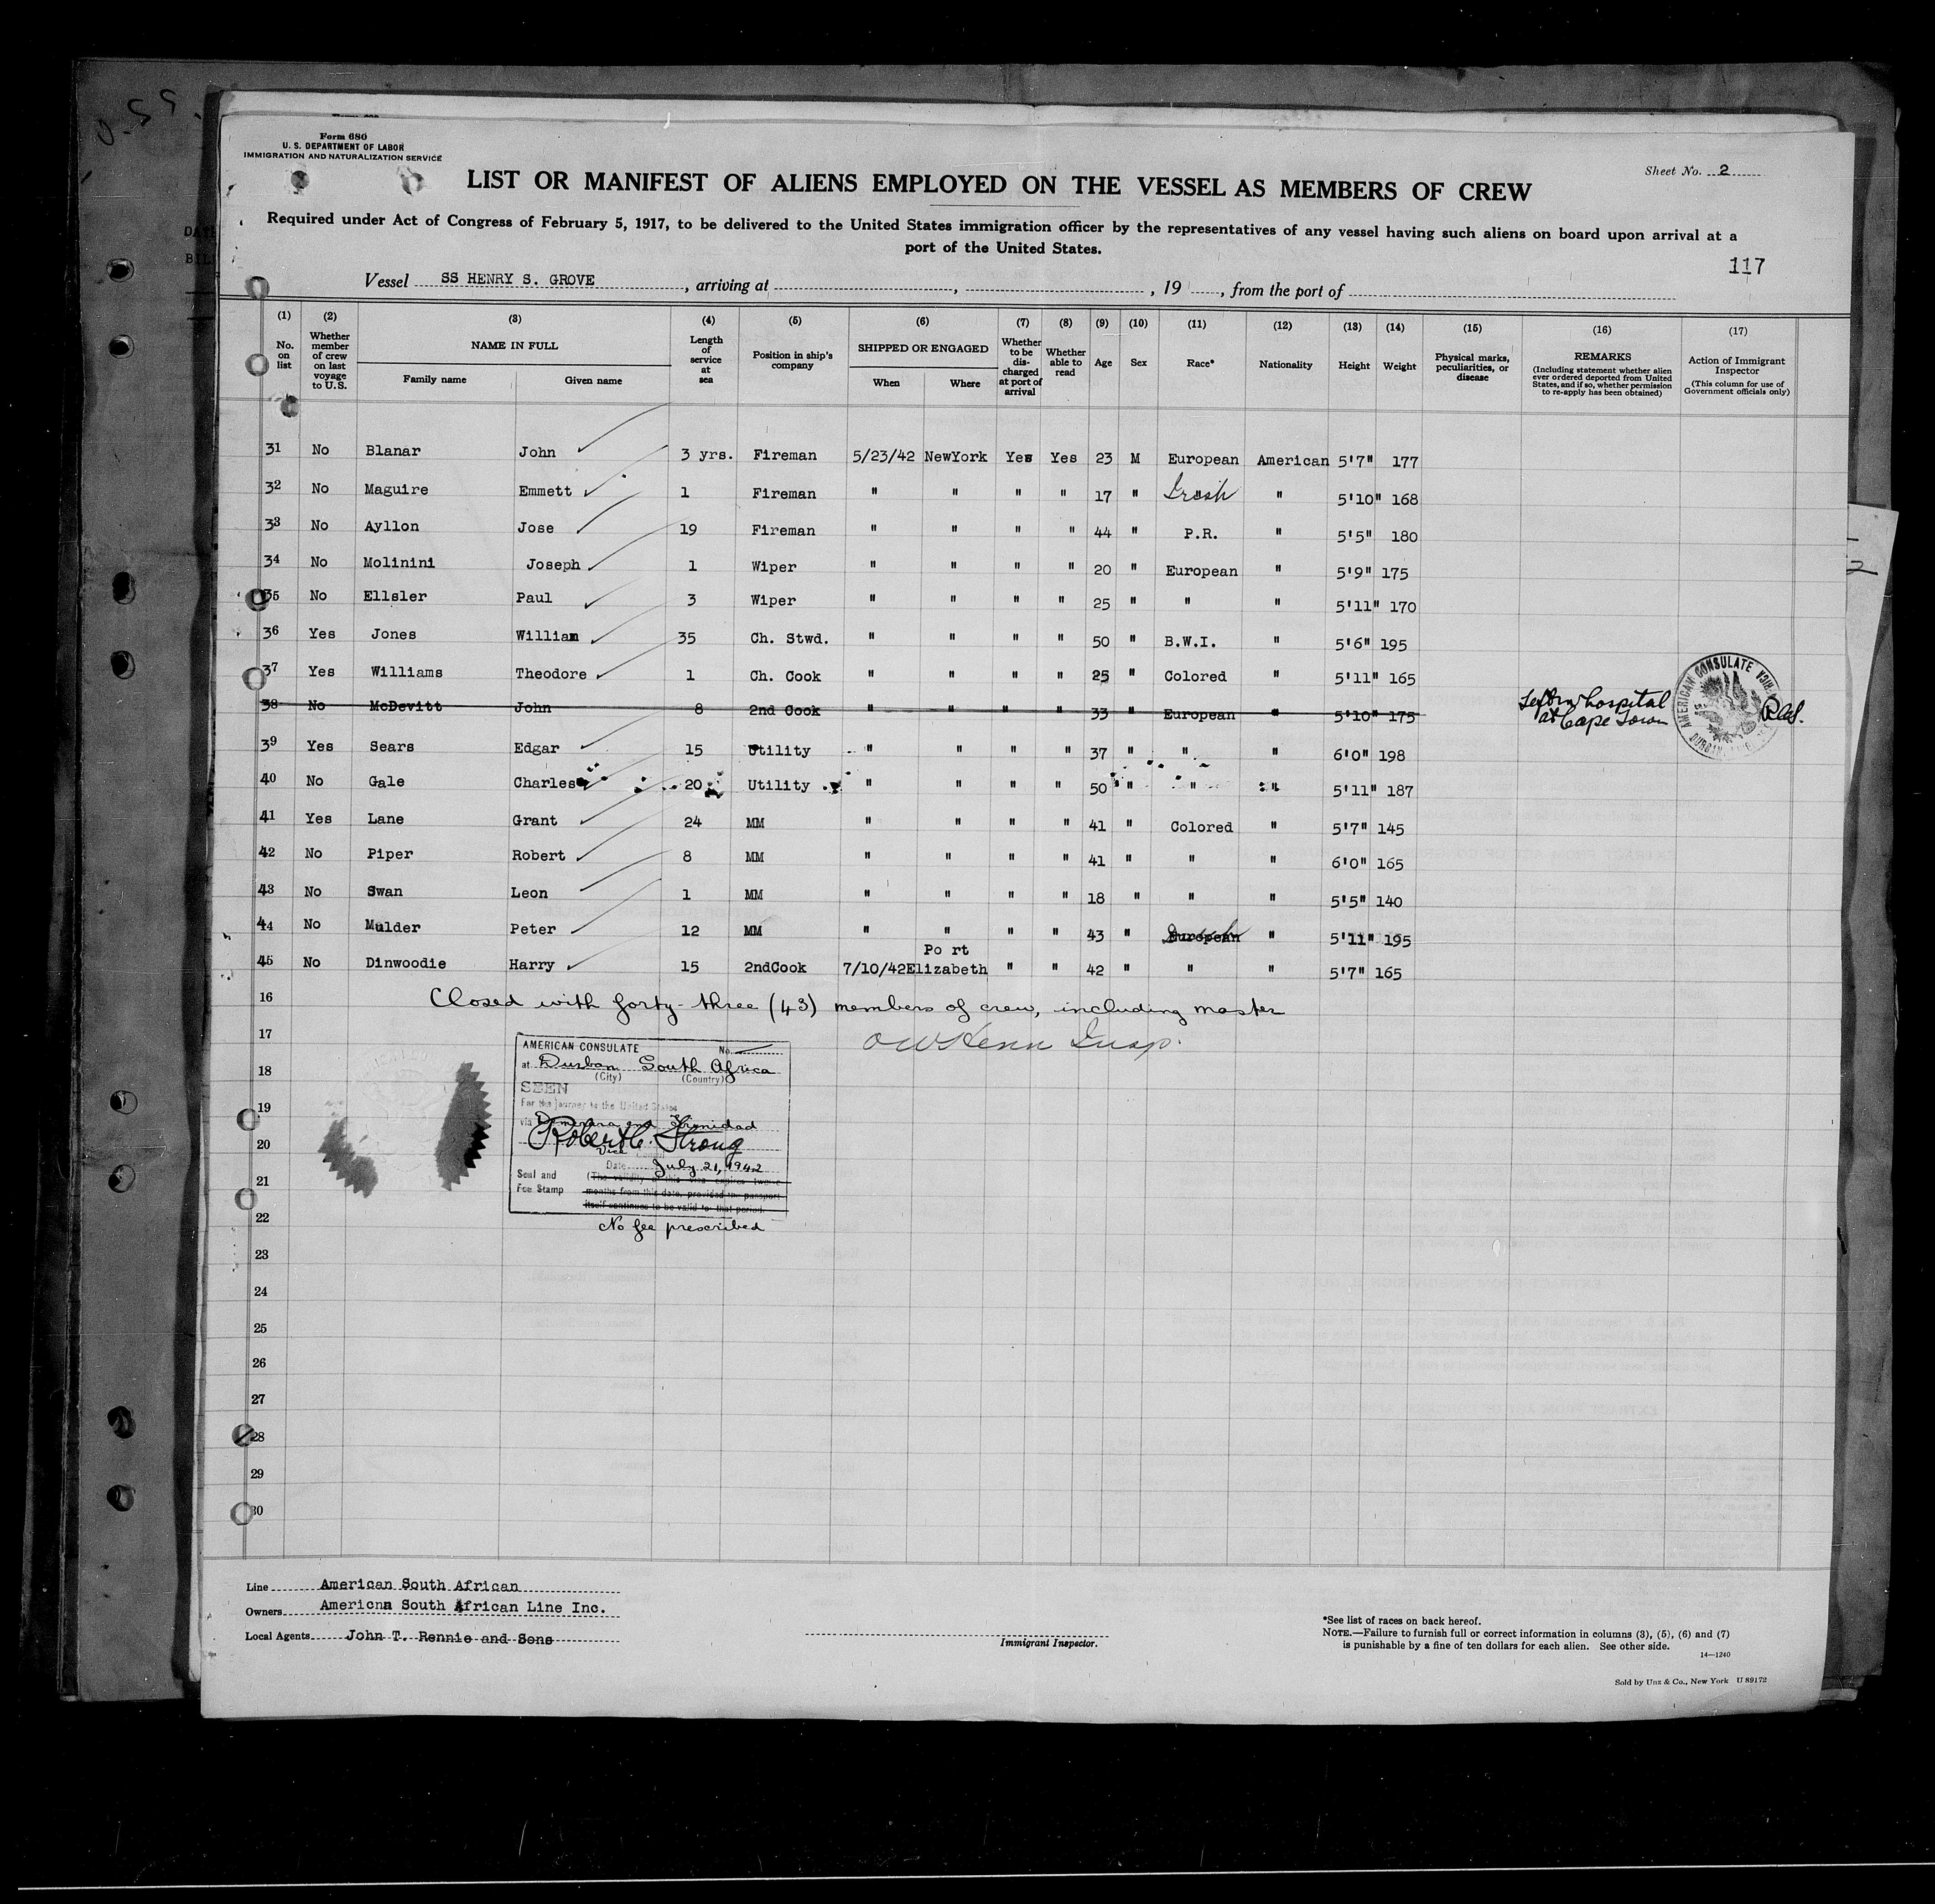 U.S.S.
Form 680
U. S. DEPARTMENT OF LABOR
IMMIGRATION AND NATURALIZATION SERVICE
Sheet No. 2
LIST OR MANIFEST OF ALIENS EMPLOYED ON THE VESSEL AS MEMBERS OF CREW
Required under Act of Congress of February 5, 1917, to be delivered to the United States immigration officer by the representatives of any vessel having such aliens on board upon arrival at a
port of the United States.
117
Vessel SS HENRY S. GROVE, arriving at , , 19 , from the port of
(1) (2) (3) (4) (5) (6) (7) (8) (9) (10) (11) (12) (13) (14) (15) (16) (17)
No. on list
Whether member of crew on last voyage to U.S.
NAME IN FULL
Family name Given name
Length of service at sea
Position in ship's company
SHIPPED OR ENGAGED
When Where
Whether to be discharged at port of arrival
Whether able to read
Age Sex Race* Nationality Height Weight
Physical marks, peculiarities, or disease
REMARKS
(Including statement whether alien ever ordered deported from United States, and if so, whether permission to re-apply has been obtained)
Action of Immigrant Inspector
(This column for use of Government officials only)
31 No Blanar John 3 yrs. Fireman 5/23/42 NewYork Yes Yes 23 M European American 5'7" 177
32 No Maguire Emmett 1 Fireman " " " " 17 " Irish " 5'10" 168
33 No Ayllon Jose 19 Fireman " " " " 44 " P.R. " 5'5" 180
34 No Molinini Joseph 1 Wiper " " " " 20 " European " 5'9" 175
35 No Ellsler Paul 3 Wiper " " " " 25 " " " 5'11" 170
36 Yes Jones William 35 Ch. Stwd. " " " " 50 " B.W.I. " 5'6" 195
37 Yes Williams Theodore 1 Ch. Cook " " " " 25 " Colored " 5'11" 165
38 No McDevitt John 8 2nd Cook " " " " 33 " European " 5'10" 175 Left in hospital at Cape Town
AMERICAN CONSULATE
39 Yes Sears Edgar 15 Utility " " " " 37 " " " 6'0" 198
40 No Gale Charles 20 Utility " " " " 50 " " " 5'11" 187
41 Yes Lane Grant 24 MM " " " " 41 " Colored " 5'7" 145
42 No Piper Robert 8 MM " " " " 41 " " " 6'0" 165
43 No Swan Leon 1 MM " " " " 18 " " " 5'5" 140
44 No Mulder Peter 12 MM " " " " 43 " European " 5'11" 195
45 No Dinwoodie Harry 15 2ndCook 7/10/42 Po rt Elizabeth " " 42 " " " 5'7" 165
16 Closed with forty-three (43) members of crew, including master
17
18
19
20
21
22
23
24
25
26
27
28
29
30
AMERICAN CONSULATE No.
at Durban South Africa
(City) (Country)
SEEN
For the journey to the United States
via Demerara and Trinidad
Robert C. Strong
Vice
Date July 21, 1942
Seal and Fee Stamp
(The validity of this visa expires twelve
months from this date, provided the passport
itself continues to be valid for that period.
No fee prescribed
Line American South African
Owners Americna South African Line Inc.
Local Agents John T. Rennie and Sons
Immigrant Inspector.
*See list of races on back hereof.
NOTE.—Failure to furnish full or correct information in columns (3), (5), (6) and (7)
is punishable by a fine of ten dollars for each alien. See other side.
14—1240
Sold by Unz & Co., New York U 89172